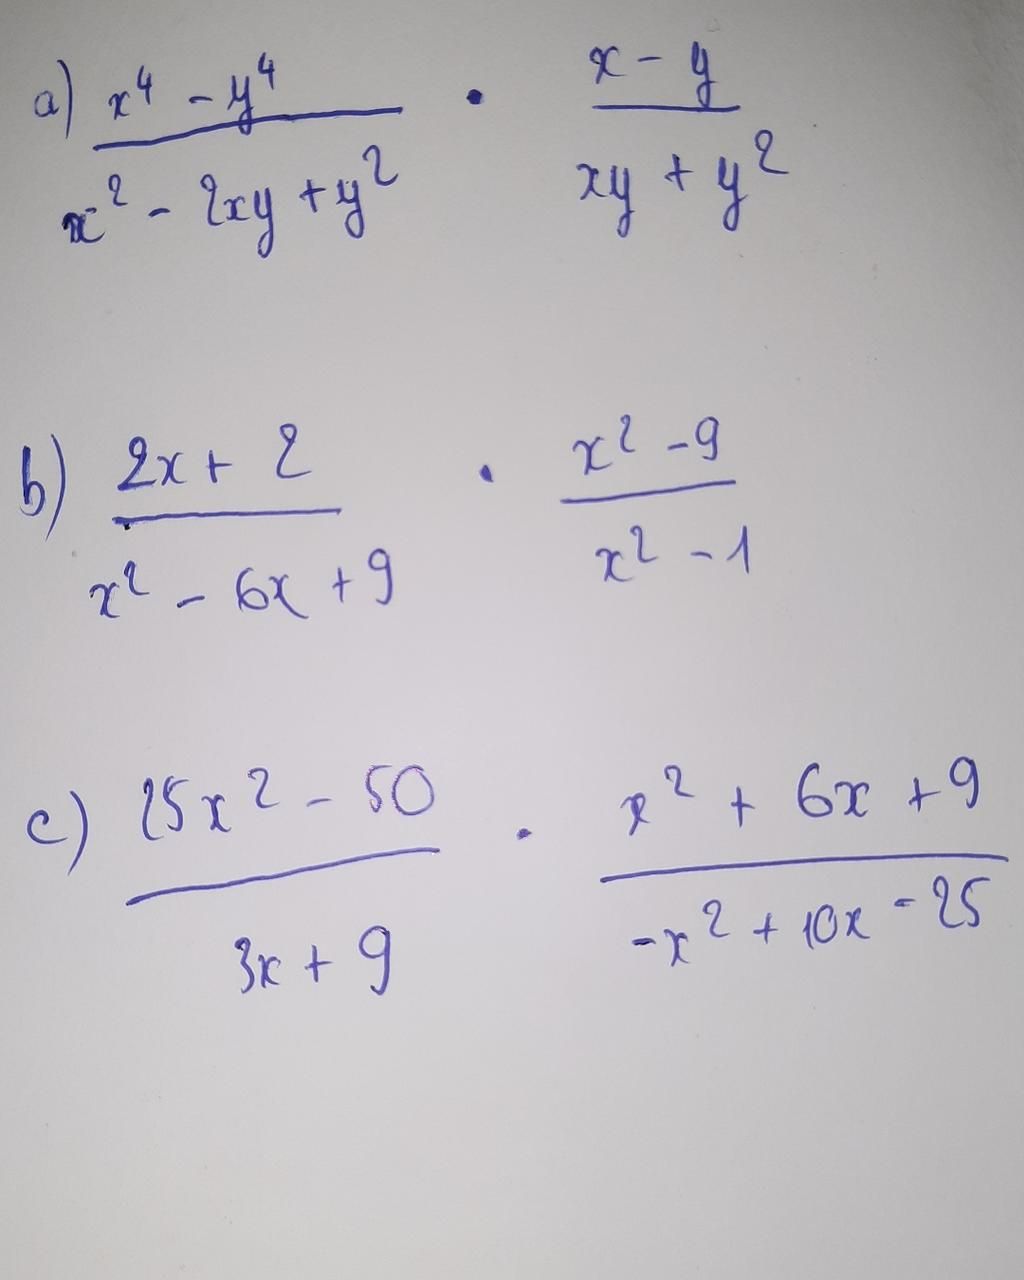 a) x⁴ - y⁴ / x² - 2xy + y² · x - y / xy + y²
b) 2x + 2 / x² - 6x + 9 · x² - 9 / x² - 1
c) 25x² - 50 / 3x + 9 · x² + 6x + 9 / -x² + 10x - 25